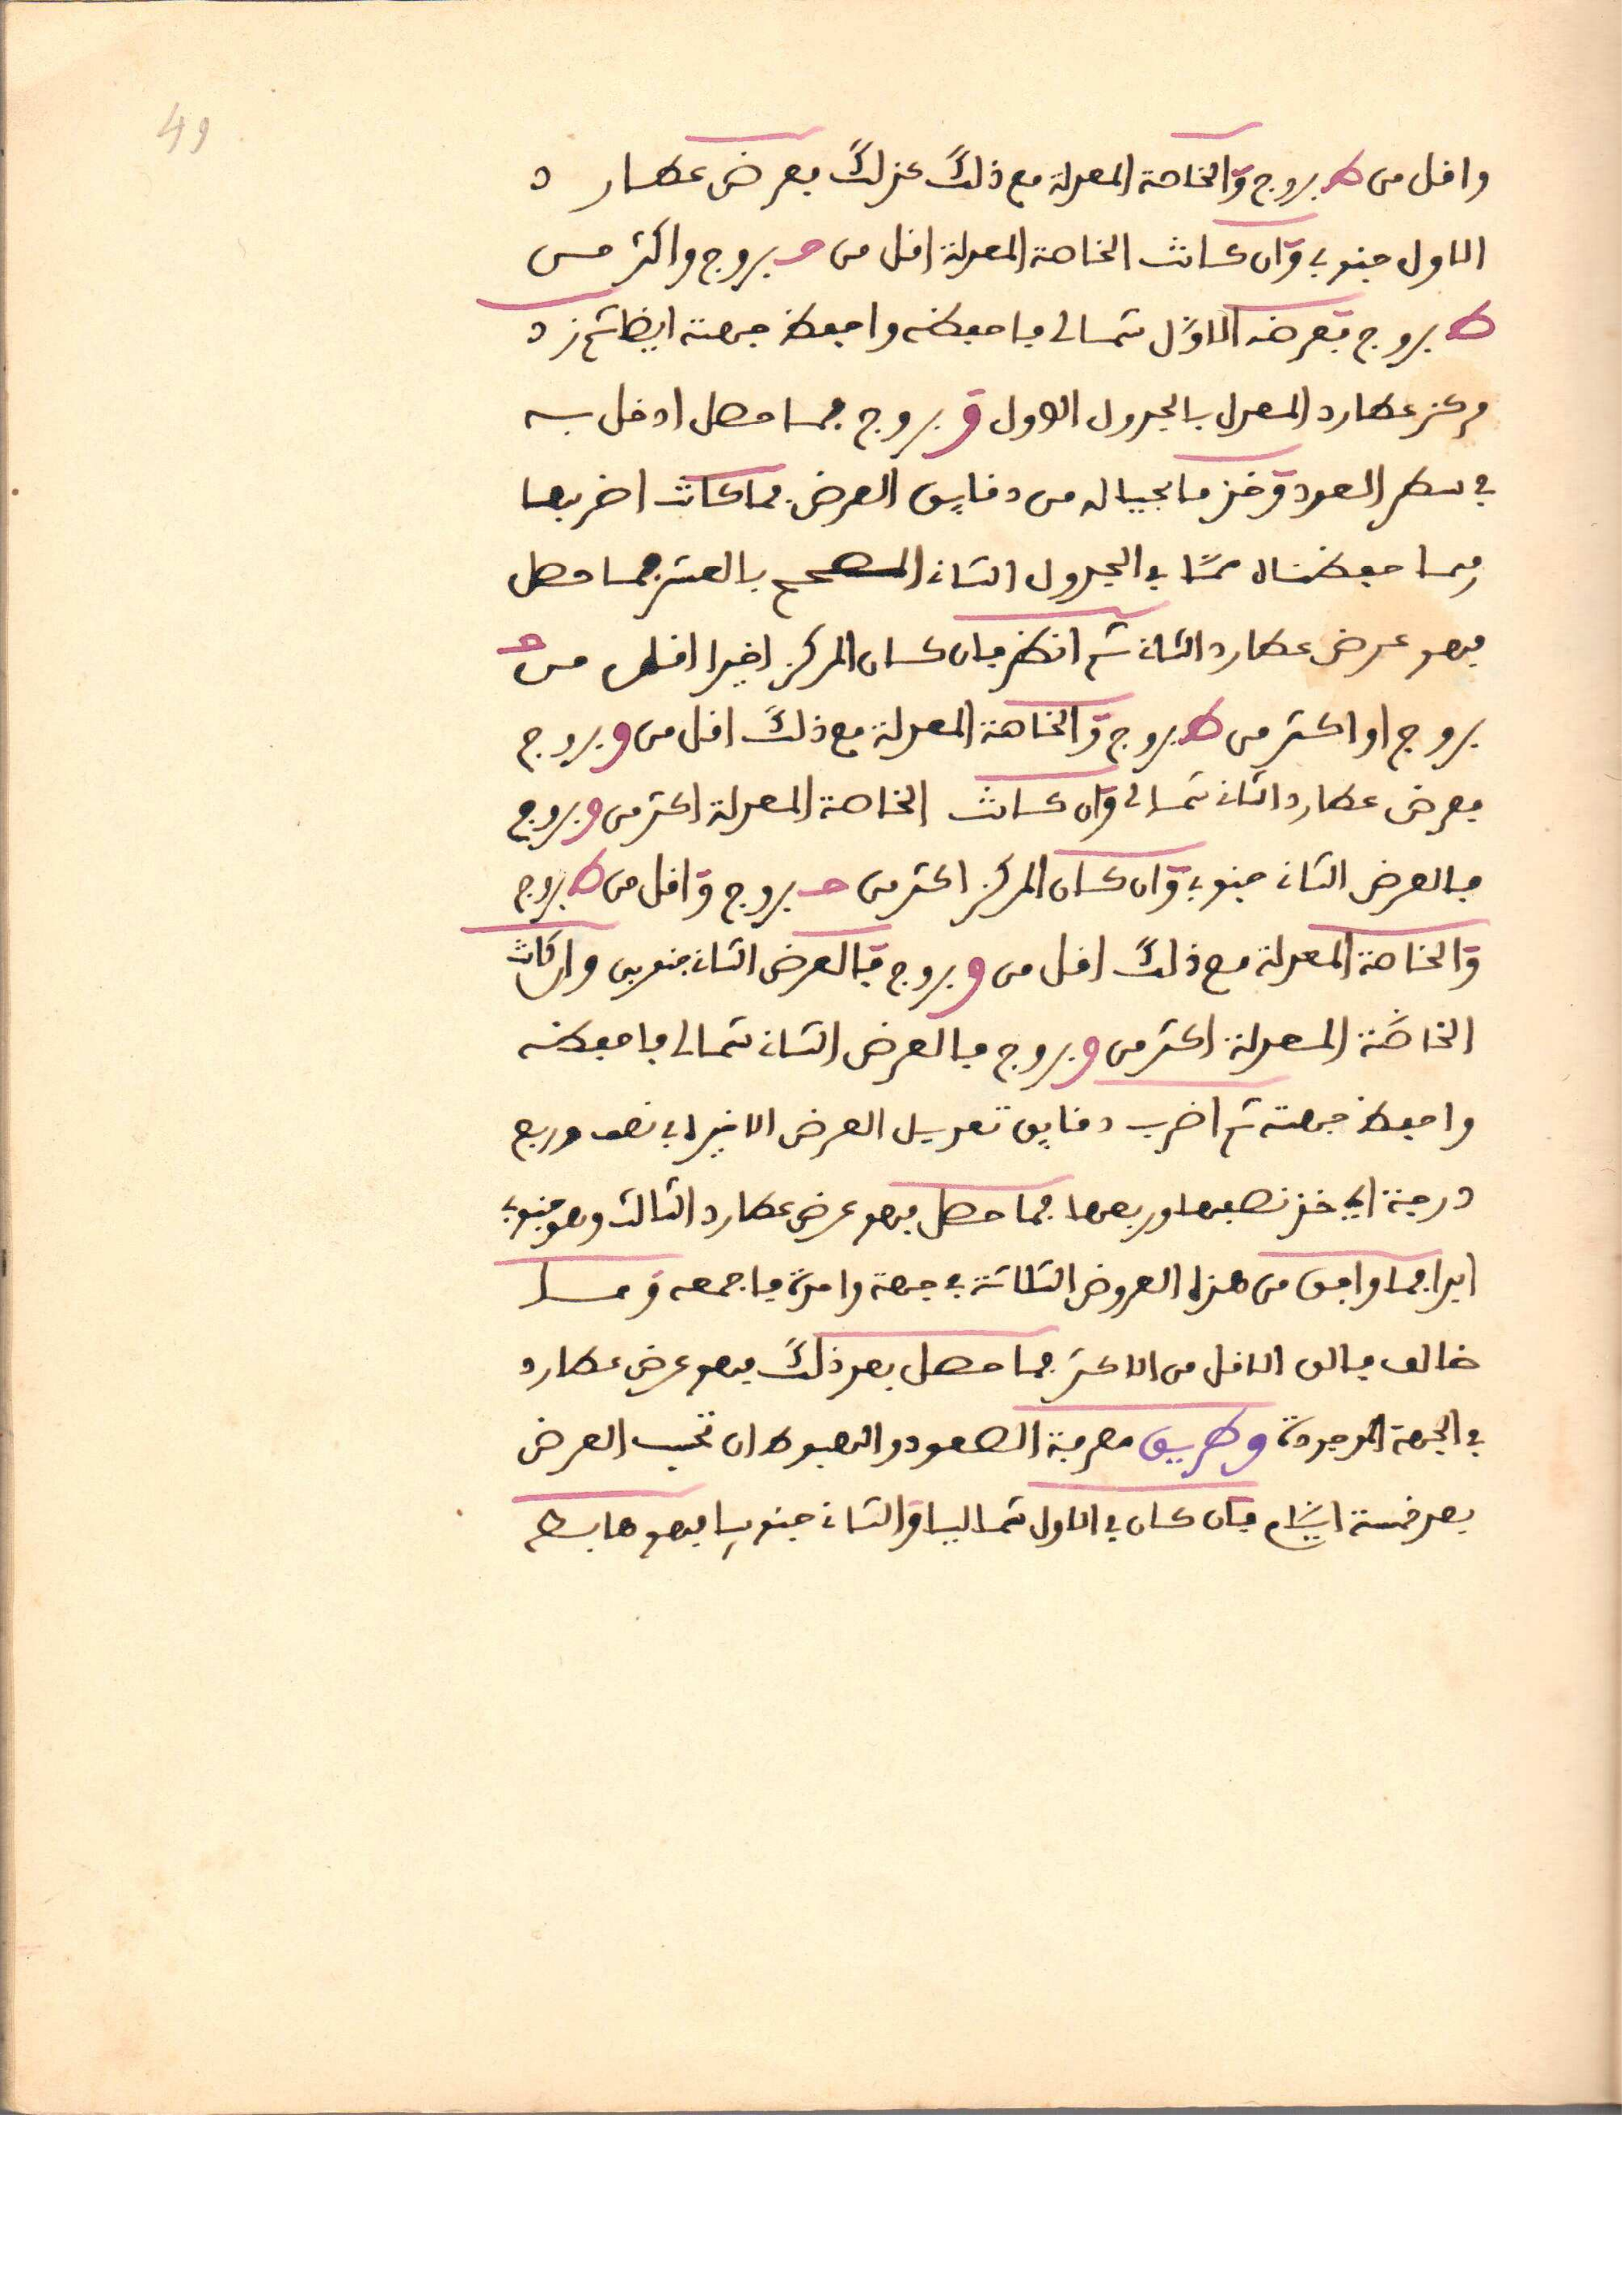 49
واقل من ط بروج والخاصة المعدلة مع ذلك كذلك فعرض عطارد
الاول جنوبي وان كانت الخاصة المعدلة اقل من ح بروج واكثر من
ط بروج فعرضه الاول شمالي فاحفظه واحفظ جهته ايضا ثم زد
مركز عطارد المعدل بالجدول الاول و بروج فما حصل ادخل به
في سطر العدد وخذ ما بحياله من دقايق العرض فما كانت اضربها
فيما حفظناه ممنا في الجدول الثاني المصحح بالعشر فما حصل
فهو عرض عطارد الثاني ثم انظر فان كان المركز اخيرا اقل من ح
بروج او اكثر من ط بروج والخاصة المعدلة مع ذلك اقل من و بروج
فعرض عطارد الثاني شمالي وان كانت الخاصة المعدلة اكثر من و بروج
فالعرض الثاني جنوبي وان كان المركز اكثر من ح بروج واقل من ط بروج
والخاصة المعدلة مع ذلك اقل من و بروج فالعرض الثاني جنوبي وان كانت
الخاصة المعدلة اكثر من و بروج فالعرض الثاني شمالي فاحفظه
واحفظ جهته ثم اضرب دقايق تعديل العرض الاخير في نصف وربع
درجة اي خذ نصفها وربعها فما حصل فهو عرض عطارد الثالث وهو جنوبي
ابدا فما وافق من هذه العروض الثلاثة في جهة واحدة فاجمعه وما
خالف فالق الاقل من الاكثر فما حصل بعد ذلك فهو عرض عطارد
في الجهة الموجودة وطريق معرفة الصعود والهبوط ان تحسب العرض
بعد خمسة ايام فان كان في الاول شماليا والثاني جنوبيا فهو هابط